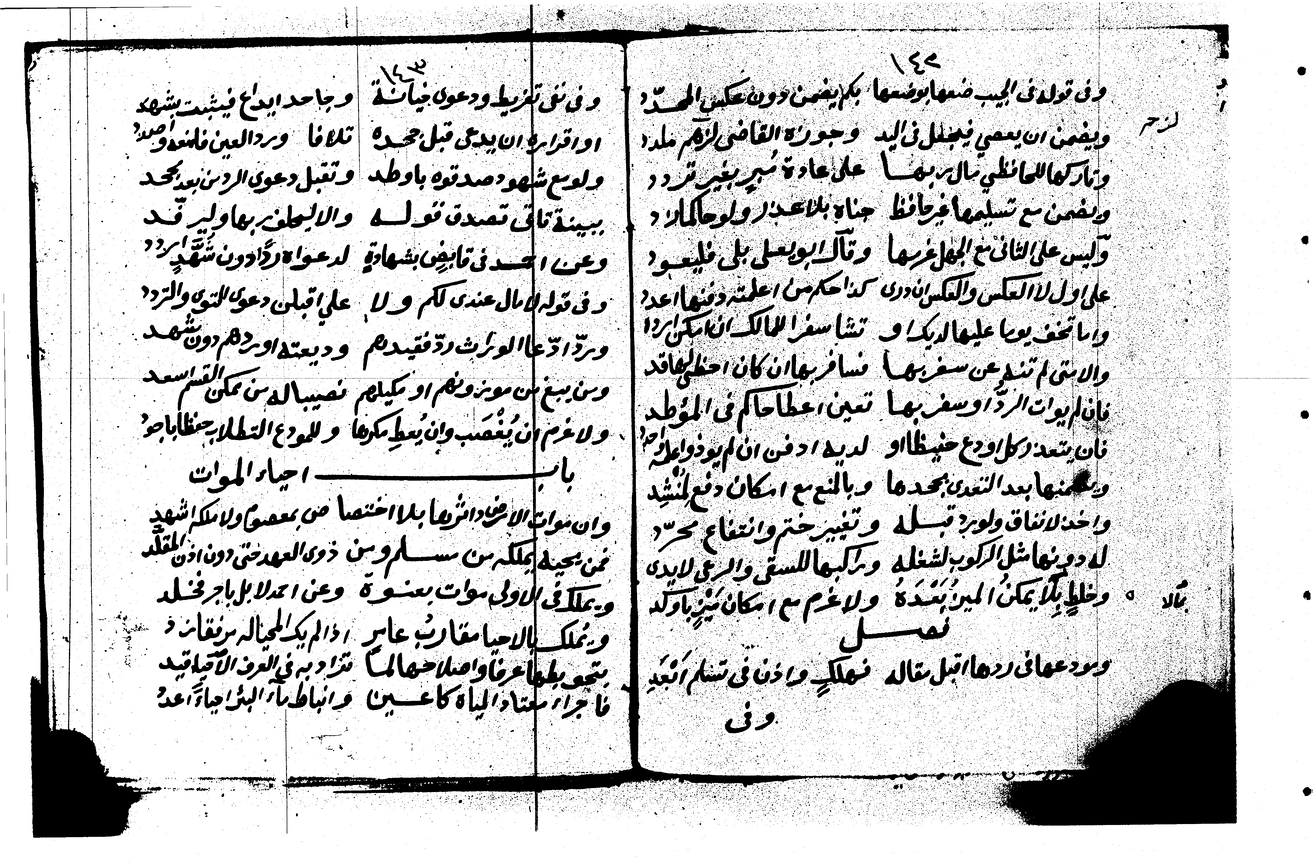 ١٤٢
وفى قوله فى الجيب ضعها بوضعها بكم يضمن دون عكس المحدد
ويضمن ان يعصي فيجعل فى اليد وجوزاه القاضى
وتاركها للحافظي مال ربها على عادة بغير تردد
ويضمن مع تسليمها غير حافظ جناه بلا عذر ولو حاكما
وليس على الثانى مع الجهل غرمها وقال ابو يعلى بلى فليعود
على اول لا العكس والعكس ان درى كذا حكم من اعلمته دفنها اعدد
واما تخف يوما عليها لديك او تشا سفرا للمالك ان امكن ارددا
والا متى لم تنه عن سفر بها فسافر بها ان كان احظى لها قد
فان لم يوات الرد او سفر بها تعين اعطا حاكم فى المؤطد
فان يتعذر كل اودع حفيظا او لديه ادفن ان لم يوذ واعلمه
ويضمنها بعد التعدى بجحدها وبالمنع مع امكان دفع لمنشد
واخذ لانفاق ولو رد قبله وتغيير ختم وانتفاع مجرد
له دونها مثل الركوب لشغله وراكبها للسقى والرعى لا يدى
وخلط بكلا يمكن الميز بعده ولا غرم مع امكان ميز باوكد
فصل
ومودعها فى ردها اقبل مقاله فهلك واذن فى تسلم ابعد
وفى
١٤٣
وفى نفى تفريط ودعوى خيانة وجاحد ايداع فيثبت بشهد
او اقراره ان يدعى قبل جحده تلافا ورد العين فامنعه واصدد
ولو مع شهود صدقوه باوطد وتقبل دعوى الرد من بعد جحد
ببينة تاتى تصدق قوله والا ليحلف ربها
وعن احمد فى قابض بشهادة لدعواه ردا دون شهد اردد
وفى قوله لا مال عندى لكم ولا على اقبلن دعوى التوى والتردد
ورد ادعا الوراث رد فقيدهم وديعته اوردهم دون شهد
ومن يبغ من موزونهم او مكيلهم نصيبا له من ممكن القسم اسعد
ولا غرم ان يغصب وان يعط مكرها وللمودع التطلاب حفظا باجود
باب احياء الموات
وان موات الارض داثرها بلا اختصاص بمعصوم ولا ملكه اشهد
فمن يحيه يملكه من مسلم ومن ذوى العهد حتى دون اذن المقلد
ويملك فى الاولى موات بعنوة وعن احمد لا بل باجر فخلد
ويملك بالاحيا مقارب عامر اذا لم يك المحيا له مرفقا زد
بتحويطها عرفا واصلاحها لما تراد به فى العرف الاحيا قيد
فاجراء معتاد المياه كاعين وانباط ماء البئر احياء اعدد